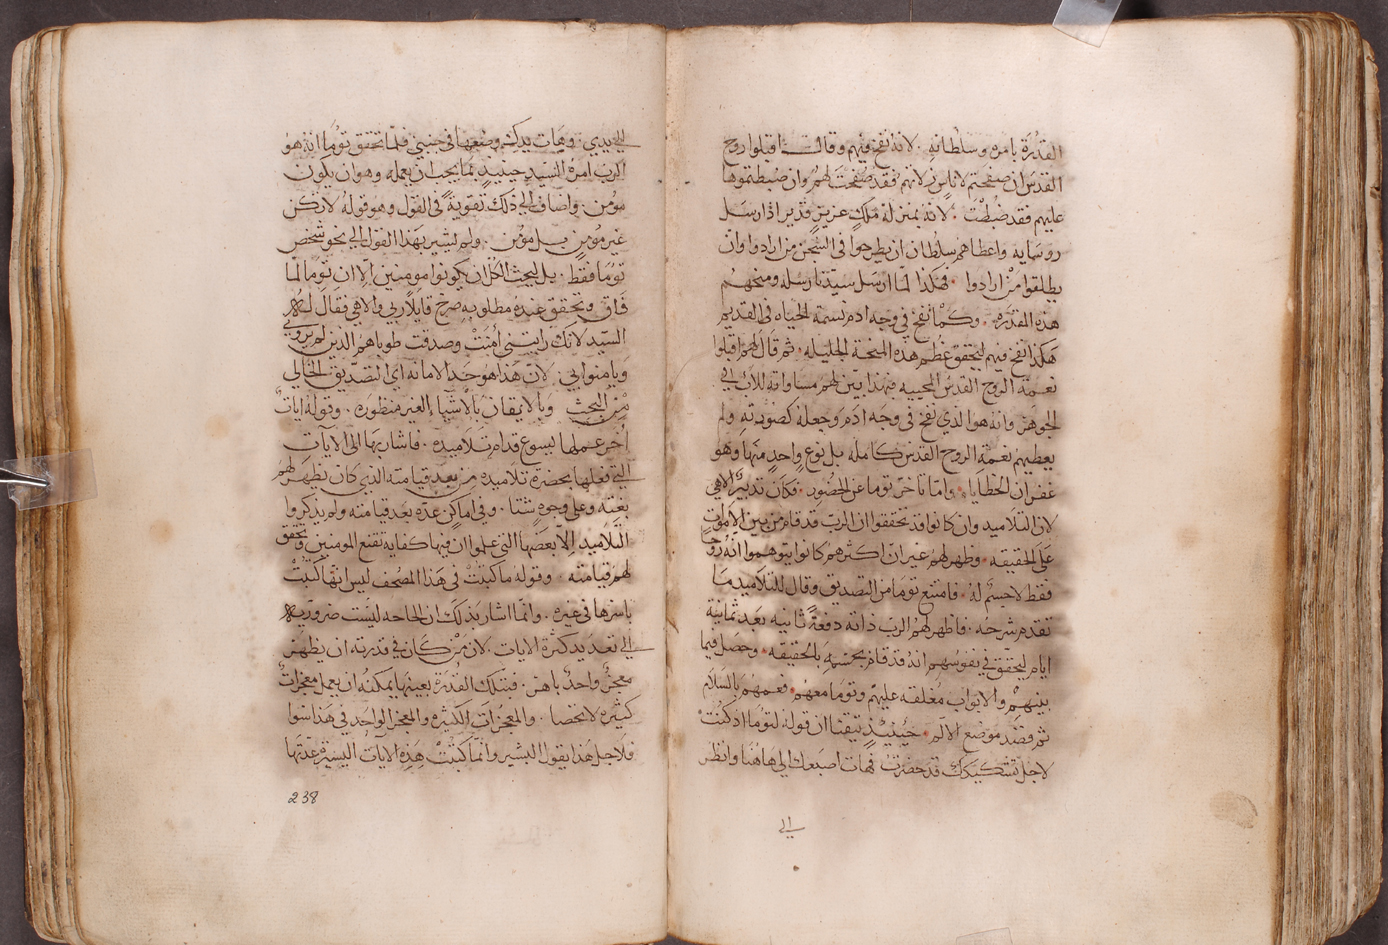 القدرة بامره وسلطانه . لانه نفخ فيهم وقال اقبلوا روح
القدس ان صفحتم لاناس زلاتهم فقد صفحت لهم وان ضبطتموها
عليهم فقد ضبطت . لانه بمنزلة ملك عزيز قدير اذا ارسل
روسايه واعطاهم سلطان ان يطرحوا في السجن من ارادوا وان
يطلقوا من ارادوا . فهكذا لما ارسل سيدنا رسله ومنحهم
هذه المقدره . وكما نفخ في وجه ادم نسمة الحياه في القديم
هكذا نفخ فيهم ليتحقق عظم هذه المنحة الجليله . ثم قال لهم اقبلوا
نعمة الروح القدس المحييه فهذا بين لهم مساواته للاب في
الجوهر وانه هو الذي نفخ في وجه ادم وجعله كصورته ولم
يعطيهم نعمة الروح القدس كامله بل نوع واحد منها وهو
غفران الخطايا . واما تاخر توما عن الحضور . فكان تدبير الاهي
لان التلاميد وان كانوا قد تحققوا ان الرب قد قام من بين الاموات
على الحقيقه . وظهر لهم غير ان اكثرهم كانوا يتوهموا انه روحا
فقط لا جسم له . فامتنع توما من التصديق وقال للتلاميد ما
تقدم شرحه . فاظهر لهم الرب ذاته دفعة ثانيه بعد ثمانية
ايام ليحقق في نفوسهم انه قد قام بجسمه بالحقيقه . وحصل فيما
بينهم والابواب مغلقه عليهم وتوما معهم . فعمهم بالسلام
ثم قصد موضع الالم . حينيد تيقنا ان قوله لتوما اد كنت
لاجل تشكيكك قد حضرت فهات اصبعك الي هاهنا وانظر
الي
الي يدي . وهات يدك وضعها في جنبي فلما تحقق توما انه هو
الرب امره السيد حينيد بما يجب ان يعمله وهو ان يكون
مومن . واضاف الي ذلك تقوية في القول وهو قوله لا تكن
غير مومن بل مومن . ولم يشير بهذا القول الي نحو شخص
توما فقط . بل ليحث الكل ان يكونوا مومنين الا ان توما لما
فاق وتحقق عنده مطلوبه صرخ قايلا ربي والاهي فقال له
السيد لانك رايتني أمنت وصدقت طوباهم الدين لم يروني
ويامنوا بي . لان هذا هو حد الامانه اي التصديق الخالي
من البحث وبالايقان بالاشيا الغير منظوره . وقوله ايات
أخر عملها ليسوع قدام تلاميده . فاشار بها الي الايات
التي فعلها بحضرة تلاميده من بعد قيامته الدي كان يظهر لهم
بغته وعلى وجوه شتا . وفي اماكن عده بعد قيامته ولم يدكروا
التلاميد الا بعضها التي علموا ان فيها كفايه تقنع المومنين وتحقق
لهم قيامته . وقوله ما كتبت في هذا المصحف ليس انها كتبت
باسرها في غيره . وانما اشار بدلك ان الحاجه ليست ضروريه
الي تعديد كثرة الايات . لان من كان في قدرته ان يظهر
معجز واحد باهر . فبتلك القدرة بعينها يمكنه ان يعمل معجزات
كثيرة لا تحصا . والمعجزات الكثيره والمعجز الواحد في هذا سوا
فلاجل هذا يقول البشير وانما كتبت هذه الايات اليسيرة عدتها
238